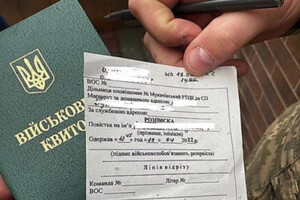 ВІЙСЬКОВО
КВИТО
на 18.0
ВОС №
Дільниця оповіщення № Мукачівський РТЦК та СП
Маршрут за домашньою адресою
За службовою адресою
РОЗПИСКА
Повістка на ім'я
(прізвище, ініціали)
Одержав
2022р.
(підпис військовозобов'язаного, резервіста)
Лінія відрізу
Команда №
Літер №
ВОС №